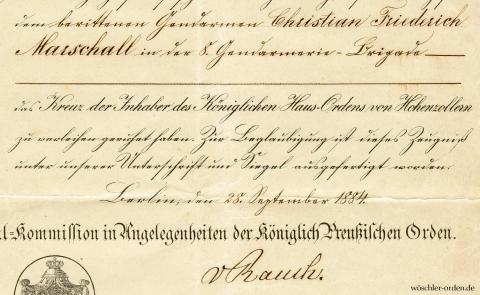 dem berittenen Gendarmen Christian Friedrich
Marschall in der 8. Gendarmerie-Brigade
das Kreuz der Inhaber des Königlichen Haus-Ordens von Hohenzollern
zu verleihen geruhet haben. Zur Beglaubigung ist dieses Zeugniß
unter unserer Unterschrift und Siegel ausgefertigt worden.
Berlin, den 28. September 1884.
l-Kommission in Angelegenheiten der Königlich Preußischen Orden.
v Rauch.
wöschler-orden.de